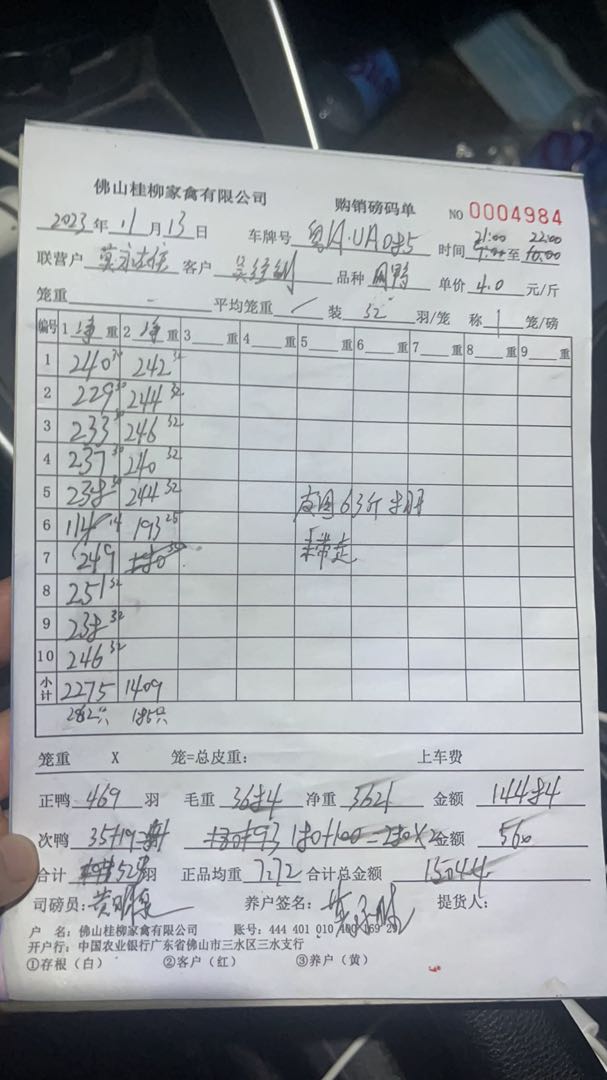 佛山桂柳家禽有限公司 购销磅码单 NO 0004984
2023年 11 月 13 日 车牌号 粤A·UA085 时间 21:00 至 22:00
联营户 客户 品种 单价 4.0 元/斤
笼重 - 平均笼重 / 装 32 羽/笼 称 1 笼/磅
编号 1 净 重 2 净 重 3 重 4 重 5 重 6 重 7 重 8 重 9 重
1 240 30 242 32
2 229 30 244 32
3 233 30 246 32
4 237 30 240 32
5 238 30 244 32 皮困63斤 8羽
6 114 14 193 25 未带走
7 249
8 251 32
9 238 32
10 246 32
小计 2275 1409
282只 185只
笼重 X 笼=总皮重: 上车费
正鸭 469 羽 毛重 3684 净重 3621 金额 14484
次鸭 35+19 180+100=280×2 金额 560
合计 528 羽 正品均重 7.72 合计总金额 15044
司磅员: 养户签名: 提货人:
户 名: 佛山桂柳家禽有限公司 账号: 444 401 010 400 169 29
开户行: 中国农业银行广东省佛山市三水区三水支行
①存根(白) ②客户(红) ③养户(黄)